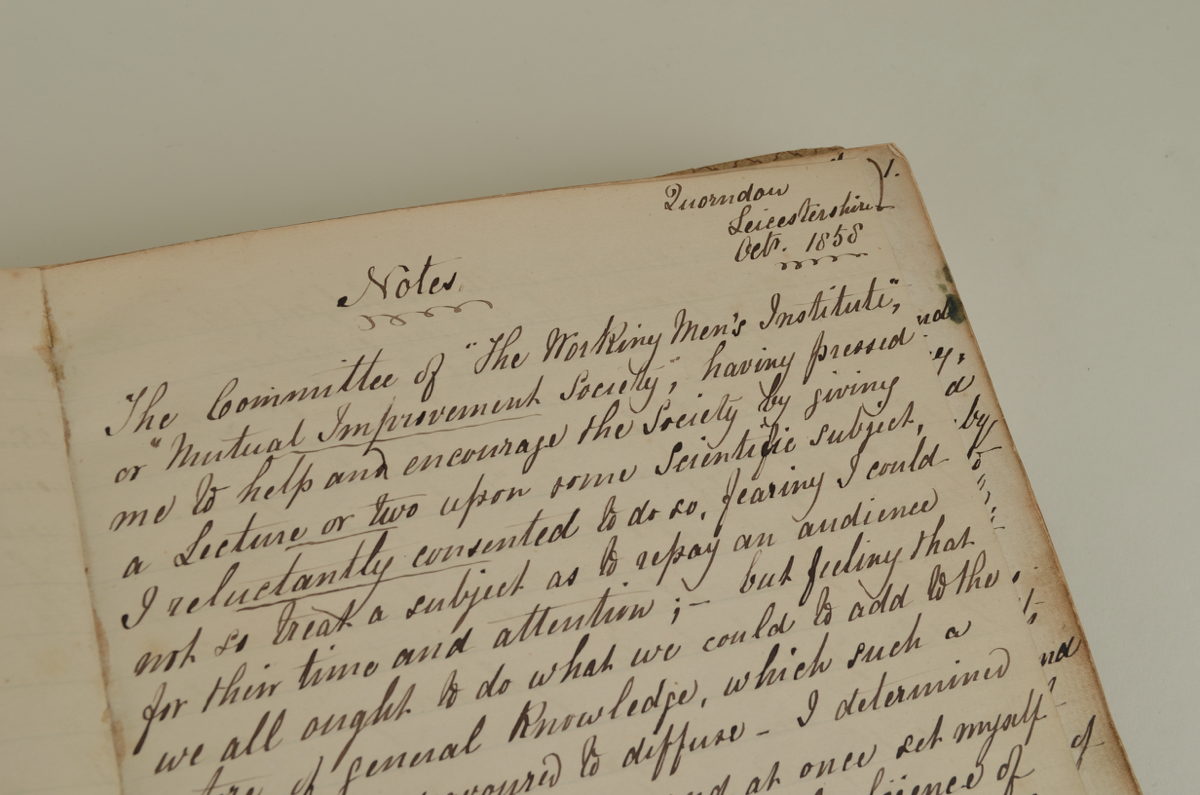 Quorndon
Leicestershire } 1.
Octr. 1858
Notes
The Committee of "The Working Men's Institute",
or "Mutual Improvement Society", having pressed
me to help and encourage the Society by giving
a Lecture or two upon some Scientific subject,
I reluctantly consented to do so, fearing I could
not so treat a subject as to repay an audience
for their time and attention ;- but feeling that
we all ought to do what we could to add to the
of general Knowledge, which such a
to diffuse - I determined
at once set myself
of
nd
a
by
nd
of